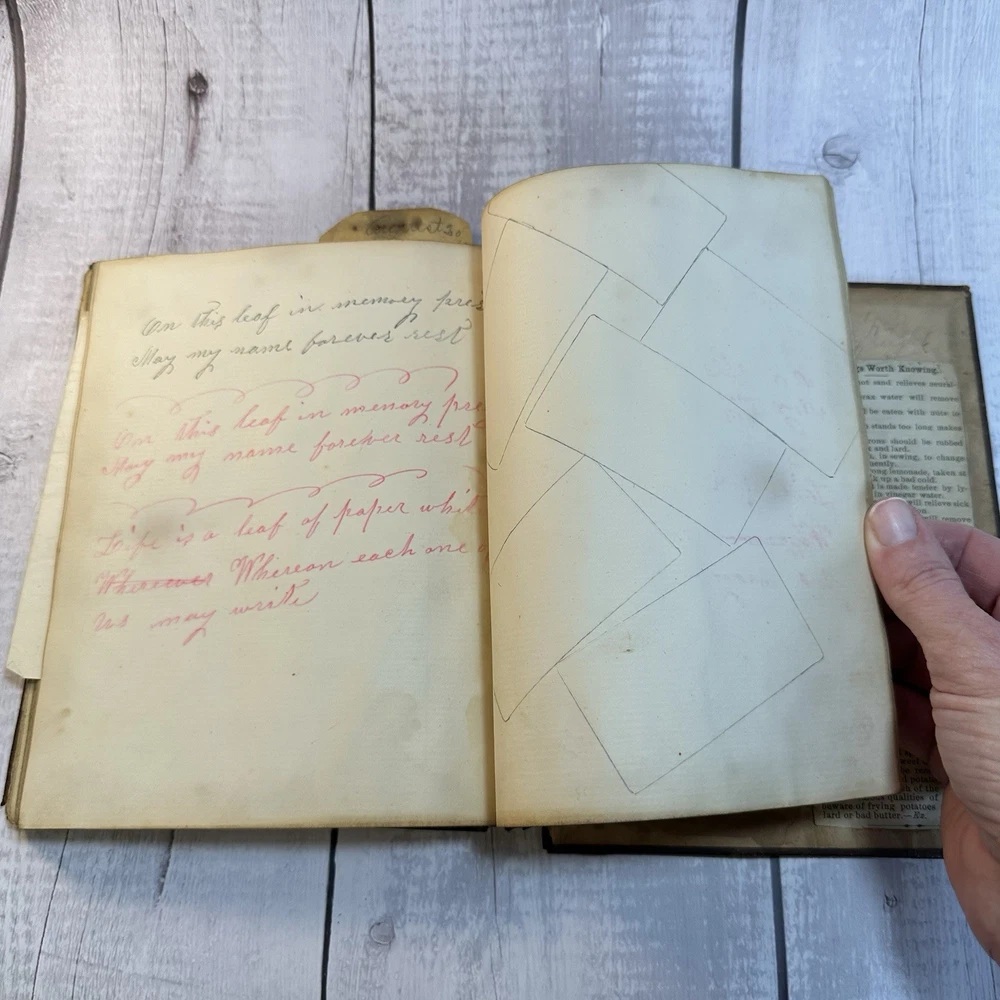 On this leaf in memory pres
May my name forever rest
On this leaf in memory pre
May my name forever rest
Life is a leaf of paper whit
Whereever Whereon each one
us may write
s Worth Knowing.
ot sand relieves neural-
ean water will remove
be eaten with
stands too long makes
rons should be rubbed
and lard.
in sewing, to change
ently.
ong lemonade, taken at
k up a bad cold.
is made tender by ly-
in vinegar water.
will relieve sick
will remove
of the
qualities of
beware of frying potatoes
lard or bad butter.—Ex.